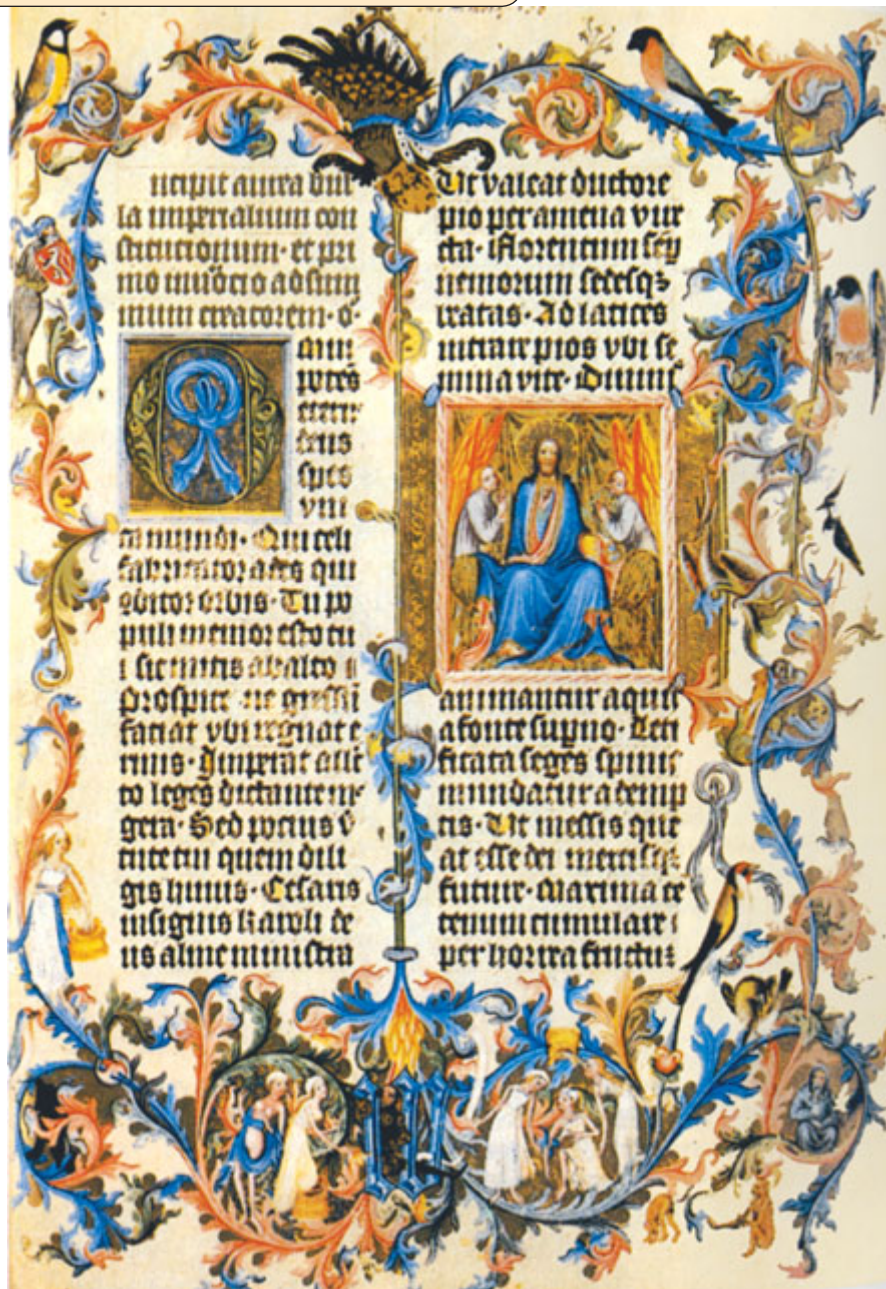 ncipit aurea bul
la imperialium con
stitucionum · et pri
mo inuocio ad sum
mum creatorem · o
mni
potēs
eterne
deus
spes
vni
ca mundi · Qui celi
fabricator ades qui
ꝯditor orbis · Tu po
puli memor esto tu
i sic mitis ab alto
Prospice ne gressū
faciat vbi regnat e
rinis · Imperat alle
cto leges dictante me
gera · Sed pocius v̄
tute tui quem dili
gis huius · Cesaris
insignis karoli de
us alme ministra
Ut valeat ductore
pio per amena vire
cta · Florentum
nemorum sedesqꝫ
beatas · Ad latices
intrare pios vbi se
mina vite · Diuinis
animantur aquis
a fonte supno · Leti
ficata seges spinis
mundatur ademp
tis · Ut messis que
at esse dei mercisqꝫ
future · Maxima ce
tenum cumulare
per horrea fructus